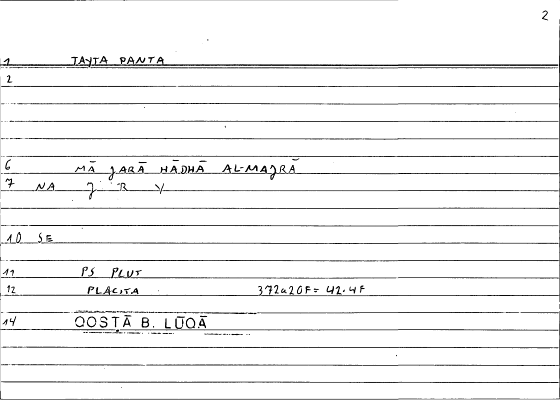 2
1 TAYTA PANTA
2
6 MĀ JARĀ HĀDHĀ AL-MAJRĀ
7 NA J R Y
10 SE
11 PS PLUT
12 PLACITA 372a20F = 42.4F
14 QOSṬĀ B. LŪQĀ